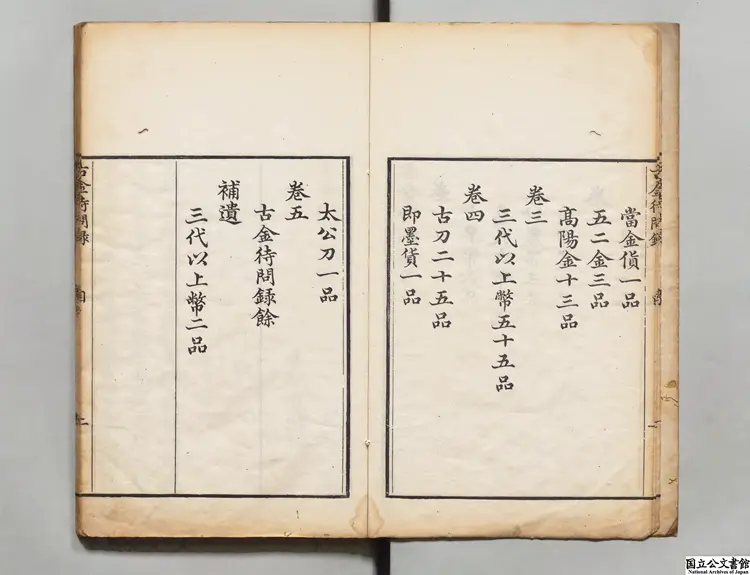 當金貨一品
五二金三品
髙陽金十三品
卷三
三代以上幣五十五品
卷四
古刀二十五品
即墨貨一品
太公刀一品
卷五
古金待問録餘
補遺
三代以上幣二品
古金待問録
國立公文書館
National Archives of Japan